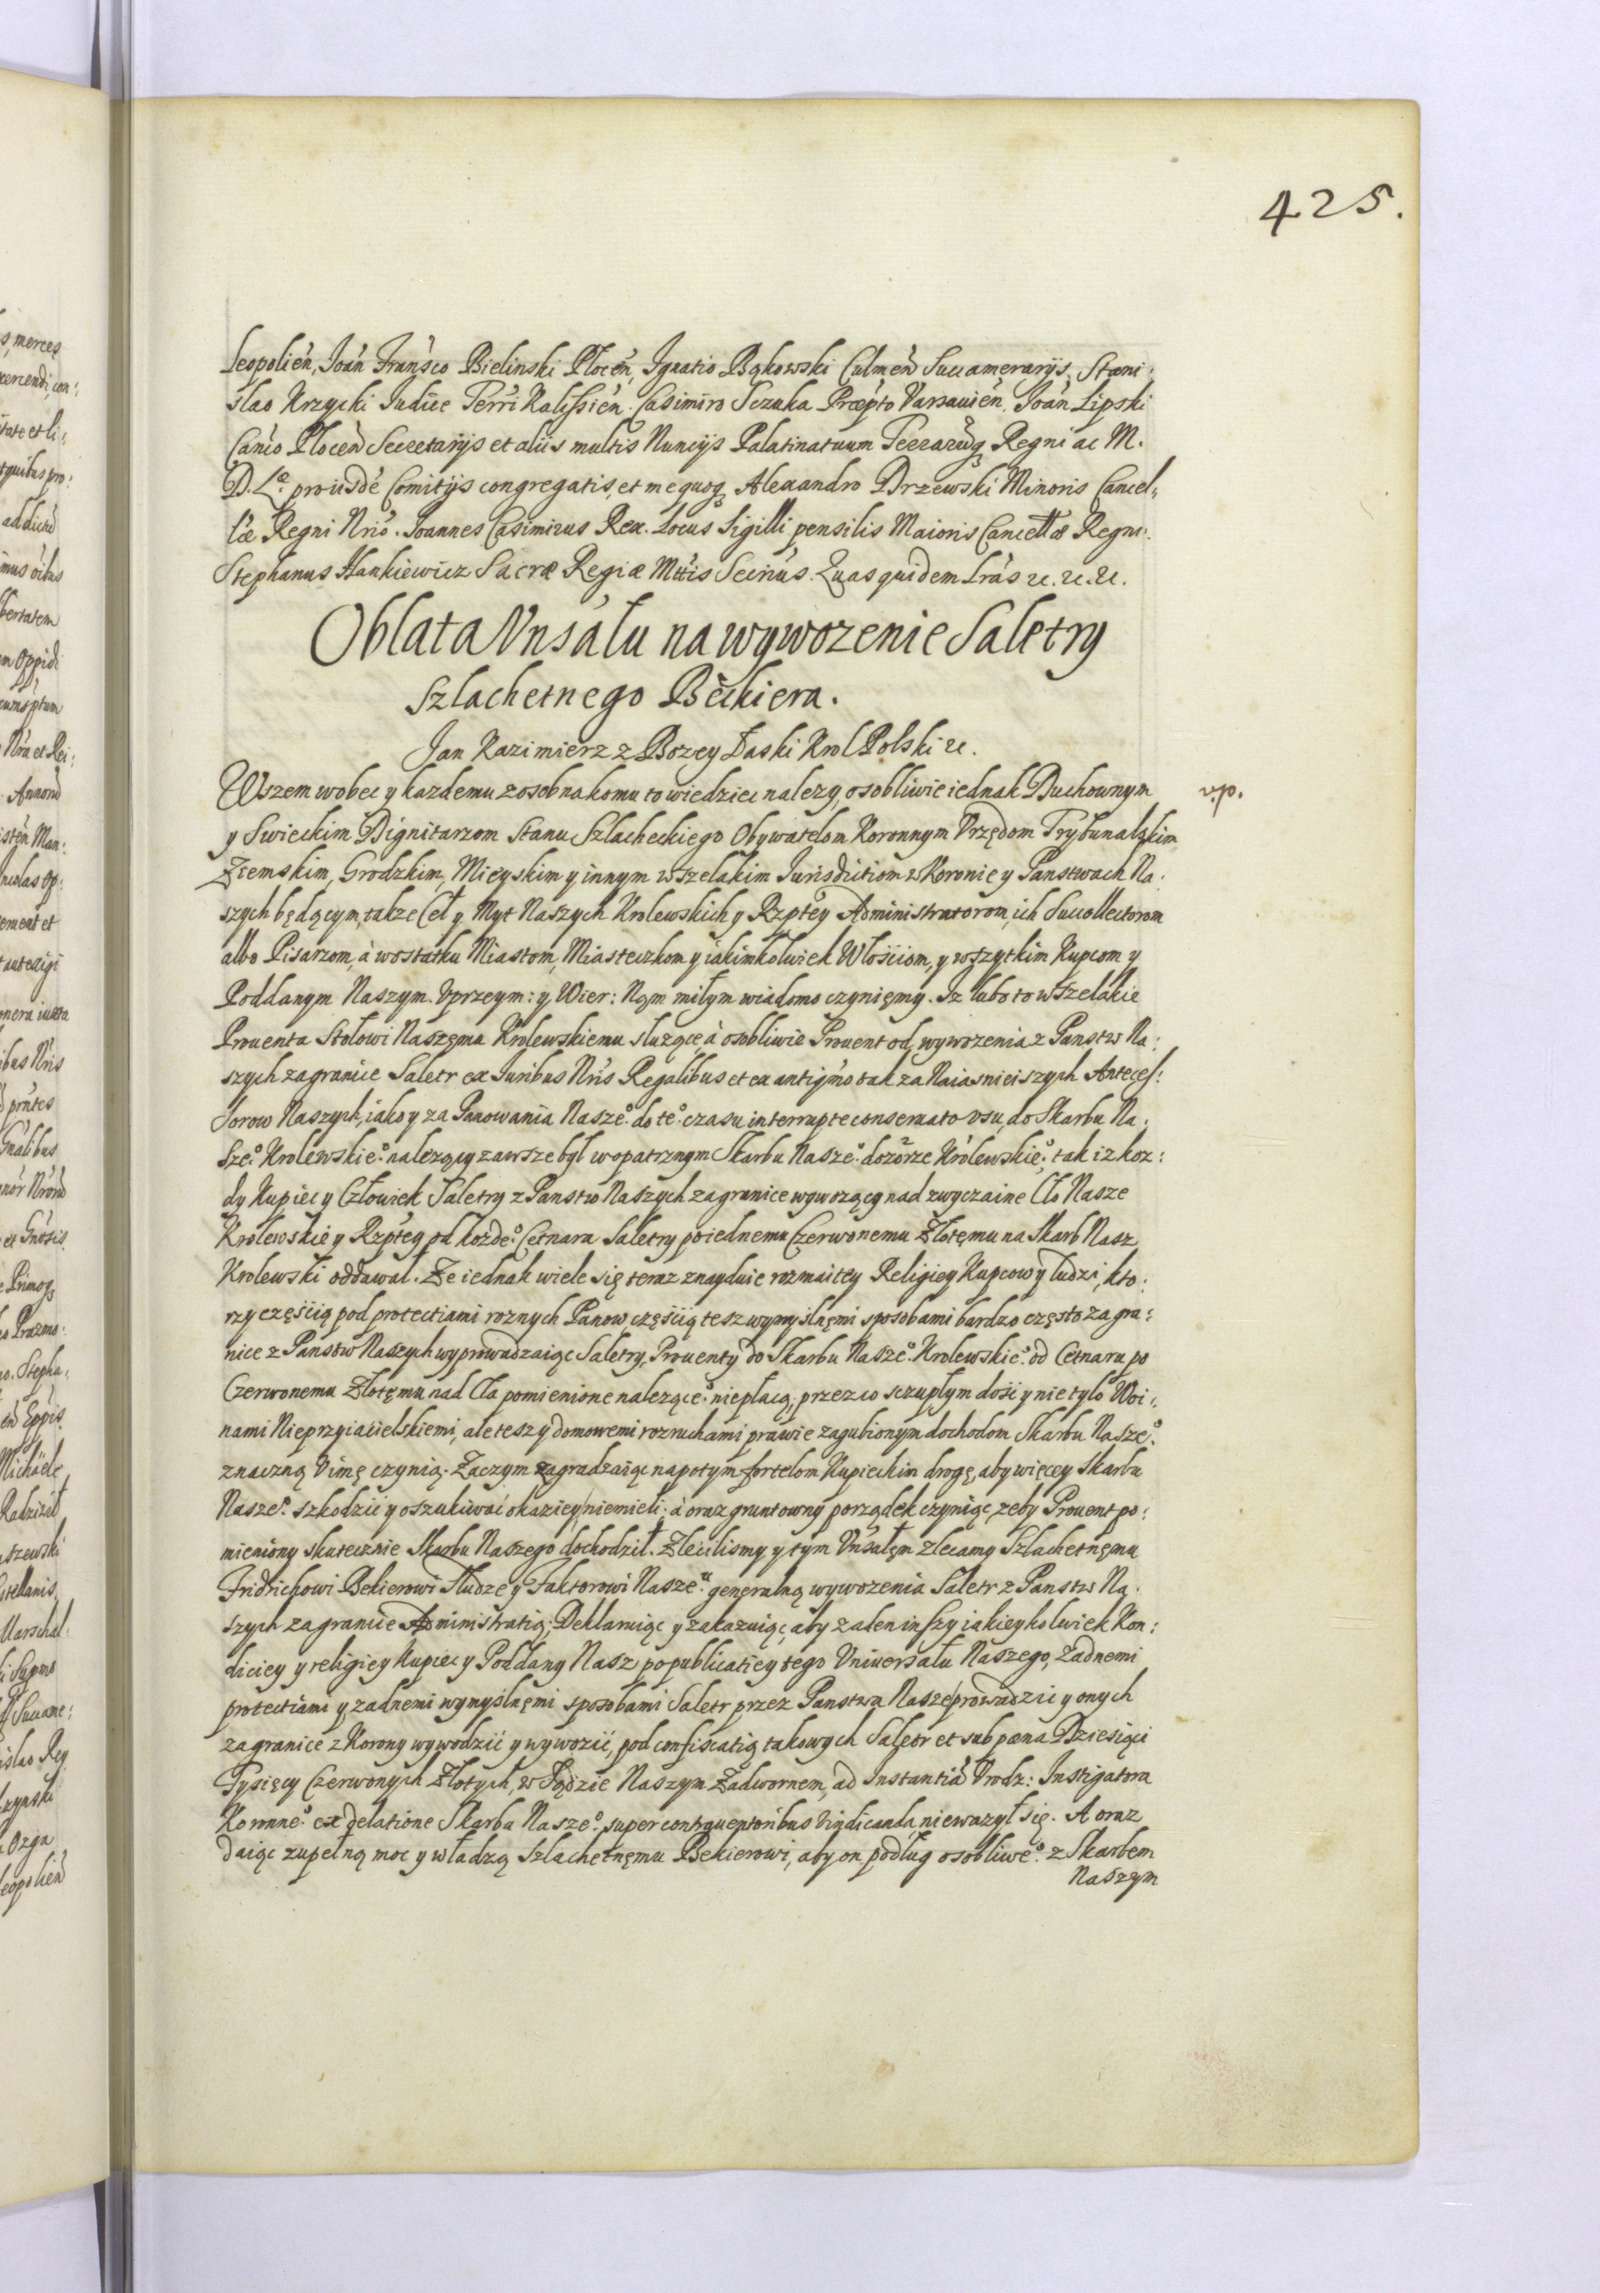 425.
Leopolień, Joań Franśco Bielinski Płoceń, Ignatio Bąkowski Culmeń Succamerarijs, Stani:
slao Krzycki Iudice Terrī Kalissień. Casimiro Sczuka Præpto Varsauień, Joań Lipski
Cańco Płoceń Secretarijs et aliis multis Nuncijs Palatinatuum Terrarūq Regni ac M.
D. Lᵃᵉ. pro iisdē Comitijs congregatis, et me quoq Alexandro Drzewski Minoris Cancel„
læ Regni Nrīo. Joannes Casimirus Rex. Locus Sigilli pensilis Maioris Cancellæ Regni.
Stephanus Hankiewicz Sacræ Regiæ Mttis Secriús. Quas quidem Lrás &. &. &.
Oblata Vnsału na wywozenie Saletry
Szlachetnego Beckiera.
Jan Kazimierz z Bozey Łaski Krol Polski &.
Wszem wobec y kazdemu z osobna komu to wiedziec nalezy, osobliwie iednak Duchownym
v.p.
y Swieckim Dignitarzom Stanu Szlacheckiego Obywatelom Koronnym Vrzędom Trybunalskim
Ziemskim, Grodzkim, Mieyskim y innym wszelakim Iurisdiction w Koronie y Panstwach Na:
szych będącym, takze Ceł y Myt Naszych Krolewskich y Rzptey Administratorom, ich Succollectorom
albo Pisarzom, à w ostatku Miastom, Miasteczkom y iakimkolwiek Włościom, y wszytkim Kupcom y
Poddanym Naszym. Vprzeym: y Wier: Nąm miłym wiadomo czynięmy. Iz lubo to wszelakie
Prouenta Stołowi Naszęmu Krolewskiemu słuzące, à osobliwie Prouent od wywozenia z Panstw Na:
szych zagranice Saletr ex Iuribus Nris Regalibus et ex antiqńo tak za Naiasnieiszych Antecess:
sorow Naszych, iako y za Panowania Nasze⁰ do te⁰ czasu interrupte conseruato vsu, do Skarbu Na:
sze⁰ Krolewskie⁰ nalezący zawsze był w opatrznym Skarbu Nasze⁰ dozorze Królewskie⁰, tak iz koz:
dy Kupiec y Człowiek Saletry z Panstw Naszych zagranice wywozący nad zwyczaine Cło Nasze
Krolewskie y Rzptey od kozde⁰ Cetnara Saletry po iednemu Czerwonemu Złotęmu na Skarb Nasz
Krolewski oddawał. Ze iednak wiele się teraz znayduie rozmaitey Religiey Kupcow y ludzi, kto:
rzy częścią pod protectiami roznych Panow częścią tesz wymyślnęmi sposobami bardzo często zagra:
nice z Panstw Naszych wyprowadzaiąc Saletry, Prouenty do Skarbu Nasze⁰ Krolewskie⁰ od Cetnaru po
Czerwonemu Złotęmu nad Cła pomienione nalezące⁰ niepłacą, przez co szczupłym dość y nie tylo Woi:
nami Nieprzyiacielskiemi, ale tesz y domowemi rozruchami prawie zagubionym dochodom Skarbu Nasze⁰
znaczną Vimę czynią. Zaczym zagradzaiąc napotym fortelom Kupieckim drogę, aby więcey Skarbu
Nasze⁰ szkodzić y oszukiwać okaziey niemieli. à oraz gruntowny porządek czyniąc zeby Prouent po:
mieniony skutecznie Skarbu Naszego dochodził. Zlecilismy y tym Vnsałęm zlecamy Szlachetnęmu
Fridrichowi Bekierowi Słudze y Faktorowi Naszeᵘ generalną wywozenia Saletr z Panstw Na:
szych zagranice Administratią; Deklaruiąc y zakazuiąc, aby zaden inszy iakieykolwiek Kon:
diciey y religiey Kupiec y Poddany Nasz po publicatiey tego Vniuersału Naszego, zadnemi
protectiami y zadnemi wymyślnęmi sposobami Saletr przez Panstwa Nasze prowadzic y onych
zagranice z Korony wywodzić y wywozić, pod confiscatią takowych Saletr et sub pœna Dziesiąci
Tysięcy Czerwonych Złotych, w Sądzie Naszym Zadwornem, ad Instantiā Vrodz: Instigatora
Koronne⁰ ex delatione Skarbu Nasze⁰ super contrauentoribus vindicanda, niewazył się. A oraz
daiąc zupełną moc y władzą Szlachetnęmu Bekierowi, aby on podług osobliwe⁰ z Skarbem
Naszym